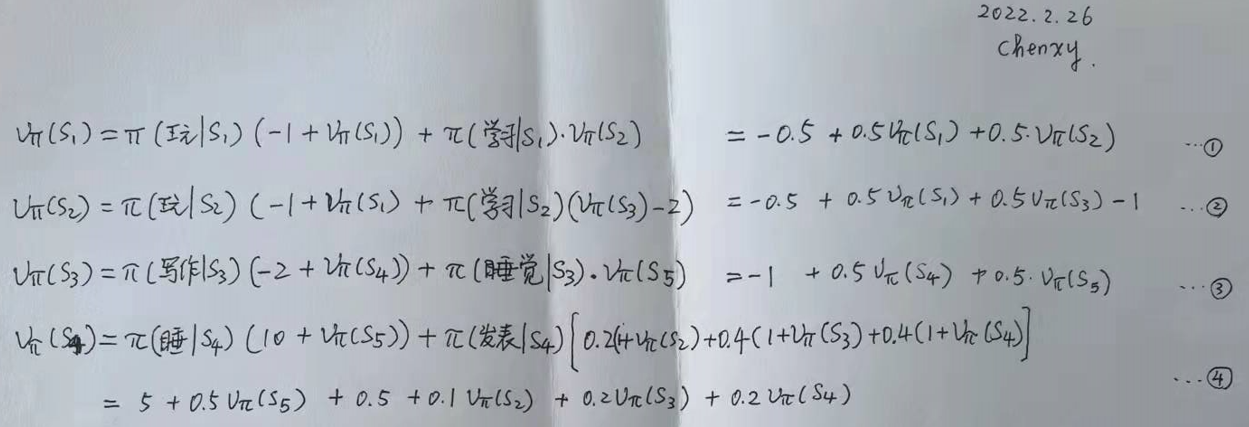 2022.2.26
Chenxy.
Vπ(S₁) = π(玩|S₁)(-1 + Vπ(S₁)) + π(学习|S₁)·Vπ(S₂) = -0.5 + 0.5Vπ(S₁) + 0.5·Vπ(S₂) ...①
Vπ(S₂) = π(玩|S₂) (-1 + Vπ(S₁) + π(学习|S₂)(Vπ(S₃)-2) = -0.5 + 0.5Vπ(S₁) + 0.5Vπ(S₃) - 1 ...②
Vπ(S₃) = π(写作|S₃)(-2 + Vπ(S₄)) + π(睡觉|S₃)·Vπ(S₅) = -1 + 0.5Vπ(S₄) + 0.5·Vπ(S₅) ...③
Vπ(S₄) = π(睡|S₄) (10 + Vπ(S₅)) + π(发表|S₄)[0.2(1+Vπ(S₂)+0.4(1+Vπ(S₃)+0.4(1+Vπ(S₄)]
= 5 + 0.5Vπ(S₅) + 0.5 + 0.1Vπ(S₂) + 0.2Vπ(S₃) + 0.2Vπ(S₄) ...④